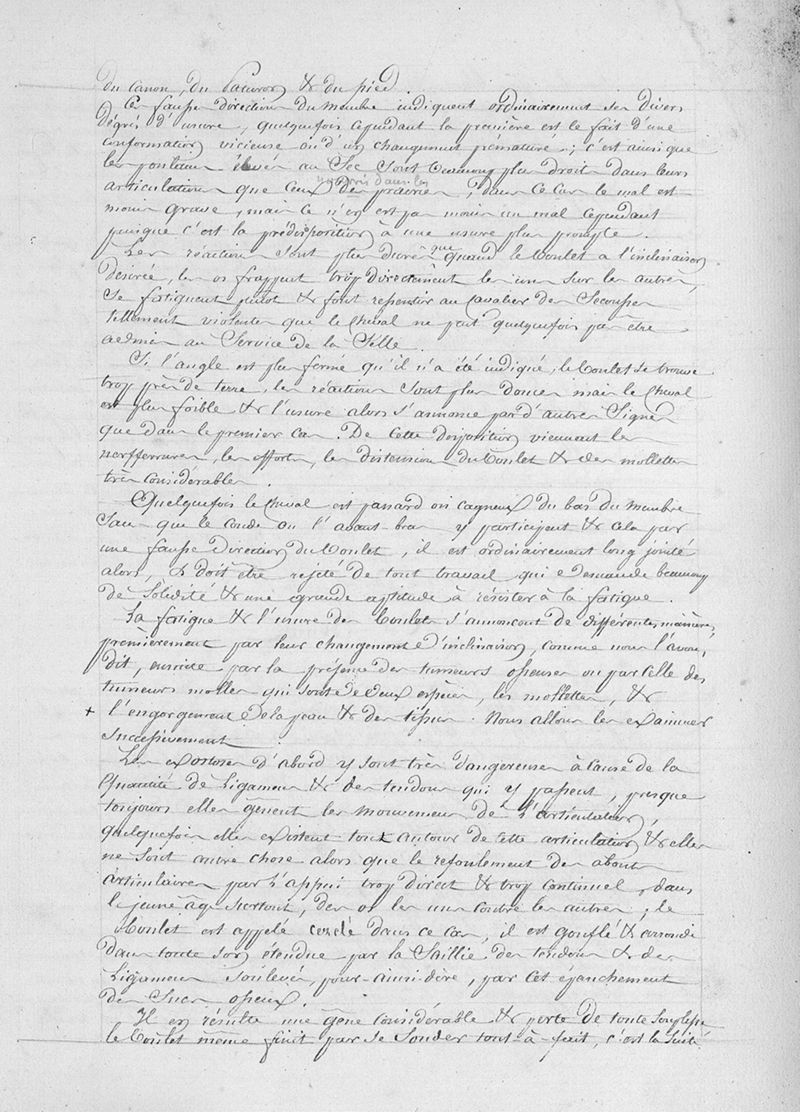 du canon, du Paturon & du pied.
Ces fausses directions du membre indiquent ordinairement ses divers
dégrés d'usure, quelquefois cependant la première est le fait d'une
conformation vicieuse ou d'un changement prématuré; c'est ainsi que
les poulains élevés au Sec sont beaucoup plus droits dans leurs
articulations que ceux des prairies; dans ce cas le mal est
moins grave, mais ce n'en est pas moins un mal cependant
puisque c'est la prédisposition à une usure plus prompte.
Les réactions sont plus dures que quand le boulet a l'inclinaison
désirée, les os frappent trop directement les uns sur les autres,
Se fatiguent plutot & font ressentir au Cavalier des Secousses
tellement violentes que le Cheval ne peut quelquefois pas être
admis au Service de la Selle.
Si l'angle est plus fermé qu'il n'a été indiqué, le boulet se trouve
trop près de terre, les réactions sont plus douces mais le Cheval
est plus foible & l'usure alors s'annonce par d'autres Signes
que dans le premier cas. De cette disposition viennent les
nerfferrures, les efforts, les distensions du boulet & des mollettes
très considérables.
Quelquefois le Cheval est panard ou cagneux du bas du membre
Sans que le Coude ou l'avant-bras y participent & cela par
une fausse direction du boulet, il est ordinairement long jointé
alors, & doit être rejeté de tout travail qui demande beaucoup
de Solidité & une grande aptitude à résister à la fatigue.
La fatigue & l'usure des boulets s'annoncent de différentes manières,
premièrement par leur changement d'inclinaison, comme nous l'avons
dit, ensuite par la présence des tumeurs osseuses ou par celle des
tumeurs molles qui sont de deux espèces, les mollettes, &
+ l'engorgement de la peau & des tissus. Nous allons les examiner
Successivement
Les exostoses d'abord y sont très dangereuses à cause de la
Quantité de Ligamens & des tendons qui y passent, presque
toujours elles gênent les mouvemens de l'articulation,
quelquefois elles existent tout autour de cette articulation & elles
ne sont autre chose alors que le refoulement des abouts
articulaires par l'appui trop direct & trop continuel, dans
le jeune age surtout, des os les uns contre les autres; le
boulet est appelé cerclé dans ce cas, il est gonflé & arrondi
dans toute son étendue par la Saillie des tendons & des
Ligamens Soulevés, pour-ainsi-dire, par cet épanchement
de Sucs osseux.
Il en résulte une gêne considérable & perte de toute Souplesse
le boulet même finit par se Souder tout-à-fait, c'est la Suite